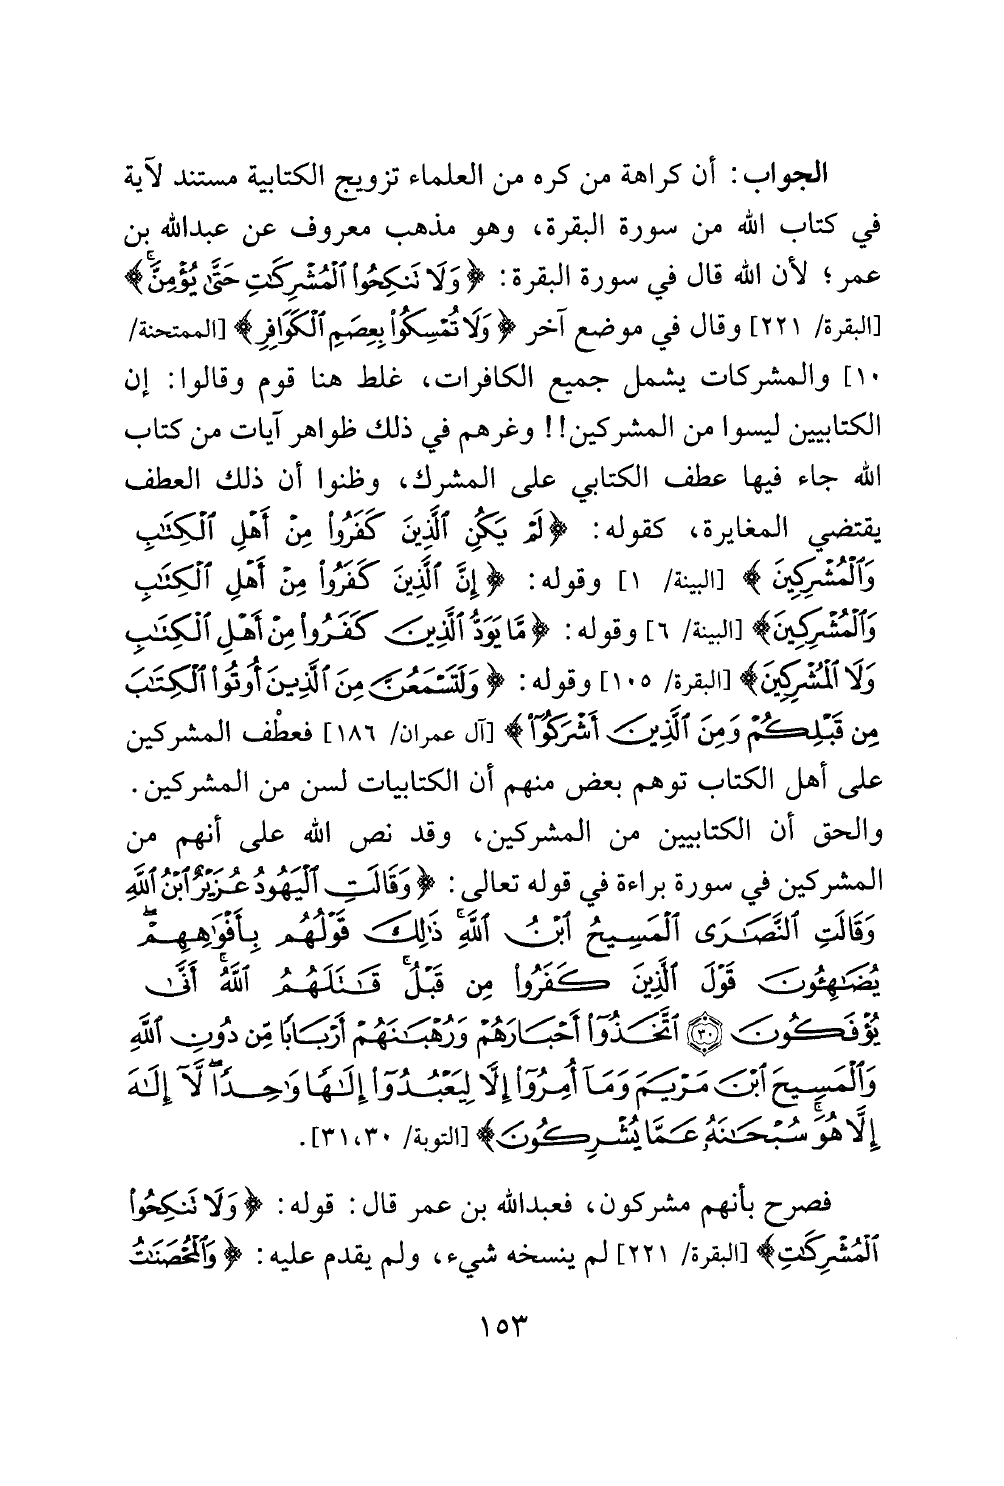 الجواب: أن كراهة من كره من العلماء تزويج الكتابية مستند لآية
في كتاب الله من سورة البقرة، وهو مذهب معروف عن عبدالله بن
عمر؛ لأن الله قال في سورة البقرة: ﴿وَلَا تَنكِحُوا۟ ٱلْمُشْرِكَٰتِ حَتَّىٰ يُؤْمِنَّ ۚ﴾
[البقرة/ ٢٢١] وقال في موضع آخر ﴿وَلَا تُمْسِكُوا۟ بِعِصَمِ ٱلْكَوَافِرِ﴾ [الممتحنة/
١٠] والمشركات يشمل جميع الكافرات، غلط هنا قوم وقالوا: إن
الكتابيين ليسوا من المشركين!! وغرهم في ذلك ظواهر آيات من كتاب
الله جاء فيها عطف الكتابي على المشرك، وظنوا أن ذلك العطف
يقتضي المغايرة، كقوله: ﴿لَمْ يَكُنِ ٱلَّذِينَ كَفَرُوا۟ مِنْ أَهْلِ ٱلْكِتَٰبِ
وَٱلْمُشْرِكِينَ﴾ [البينة/ ١] وقوله: ﴿إِنَّ ٱلَّذِينَ كَفَرُوا۟ مِنْ أَهْلِ ٱلْكِتَٰبِ
وَٱلْمُشْرِكِينَ﴾ [البينة/ ٦] وقوله: ﴿مَّا يَوَدُّ ٱلَّذِينَ كَفَرُوا۟ مِنْ أَهْلِ ٱلْكِتَٰبِ
وَلَا ٱلْمُشْرِكِينَ﴾ [البقرة/ ١٠٥] وقوله: ﴿وَلَتَسْمَعُنَّ مِنَ ٱلَّذِينَ أُوتُوا۟ ٱلْكِتَٰبَ
مِن قَبْلِكُمْ وَمِنَ ٱلَّذِينَ أَشْرَكُوٓا۟﴾ [آل عمران/ ١٨٦] فعطْف المشركين
على أهل الكتاب توهم بعض منهم أن الكتابيات لسن من المشركين.
والحق أن الكتابيين من المشركين، وقد نص الله على أنهم من
المشركين في سورة براءة في قوله تعالى: ﴿وَقَالَتِ ٱلْيَهُودُ عُزَيْرٌ ٱبْنُ ٱللَّهِ
وَقَالَتِ ٱلنَّصَٰرَى ٱلْمَسِيحُ ٱبْنُ ٱللَّهِ ۖ ذَٰلِكَ قَوْلُهُم بِأَفْوَٰهِهِمْ ۖ
يُضَٰهِـُٔونَ قَوْلَ ٱلَّذِينَ كَفَرُوا۟ مِن قَبْلُ ۚ قَٰتَلَهُمُ ٱللَّهُ ۚ أَنَّىٰ
يُؤْفَكُونَ ۝٣٠ ٱتَّخَذُوٓا۟ أَحْبَارَهُمْ وَرُهْبَٰنَهُمْ أَرْبَابًا مِّن دُونِ ٱللَّهِ
وَٱلْمَسِيحَ ٱبْنَ مَرْيَمَ وَمَآ أُمِرُوٓا۟ إِلَّا لِيَعْبُدُوٓا۟ إِلَٰهًا وَٰحِدًا ۖ لَّآ إِلَٰهَ
إِلَّا هُوَ ۚ سُبْحَٰنَهُۥ عَمَّا يُشْرِكُونَ﴾ [التوبة/ ٣١،٣٠].
فصرح بأنهم مشركون، فعبدالله بن عمر قال: قوله: ﴿وَلَا تَنكِحُوا۟
ٱلْمُشْرِكَٰتِ﴾ [البقرة/ ٢٢١] لم ينسخه شيء، ولم يقدم عليه: ﴿وَٱلْمُحْصَنَٰتُ
١٥٣